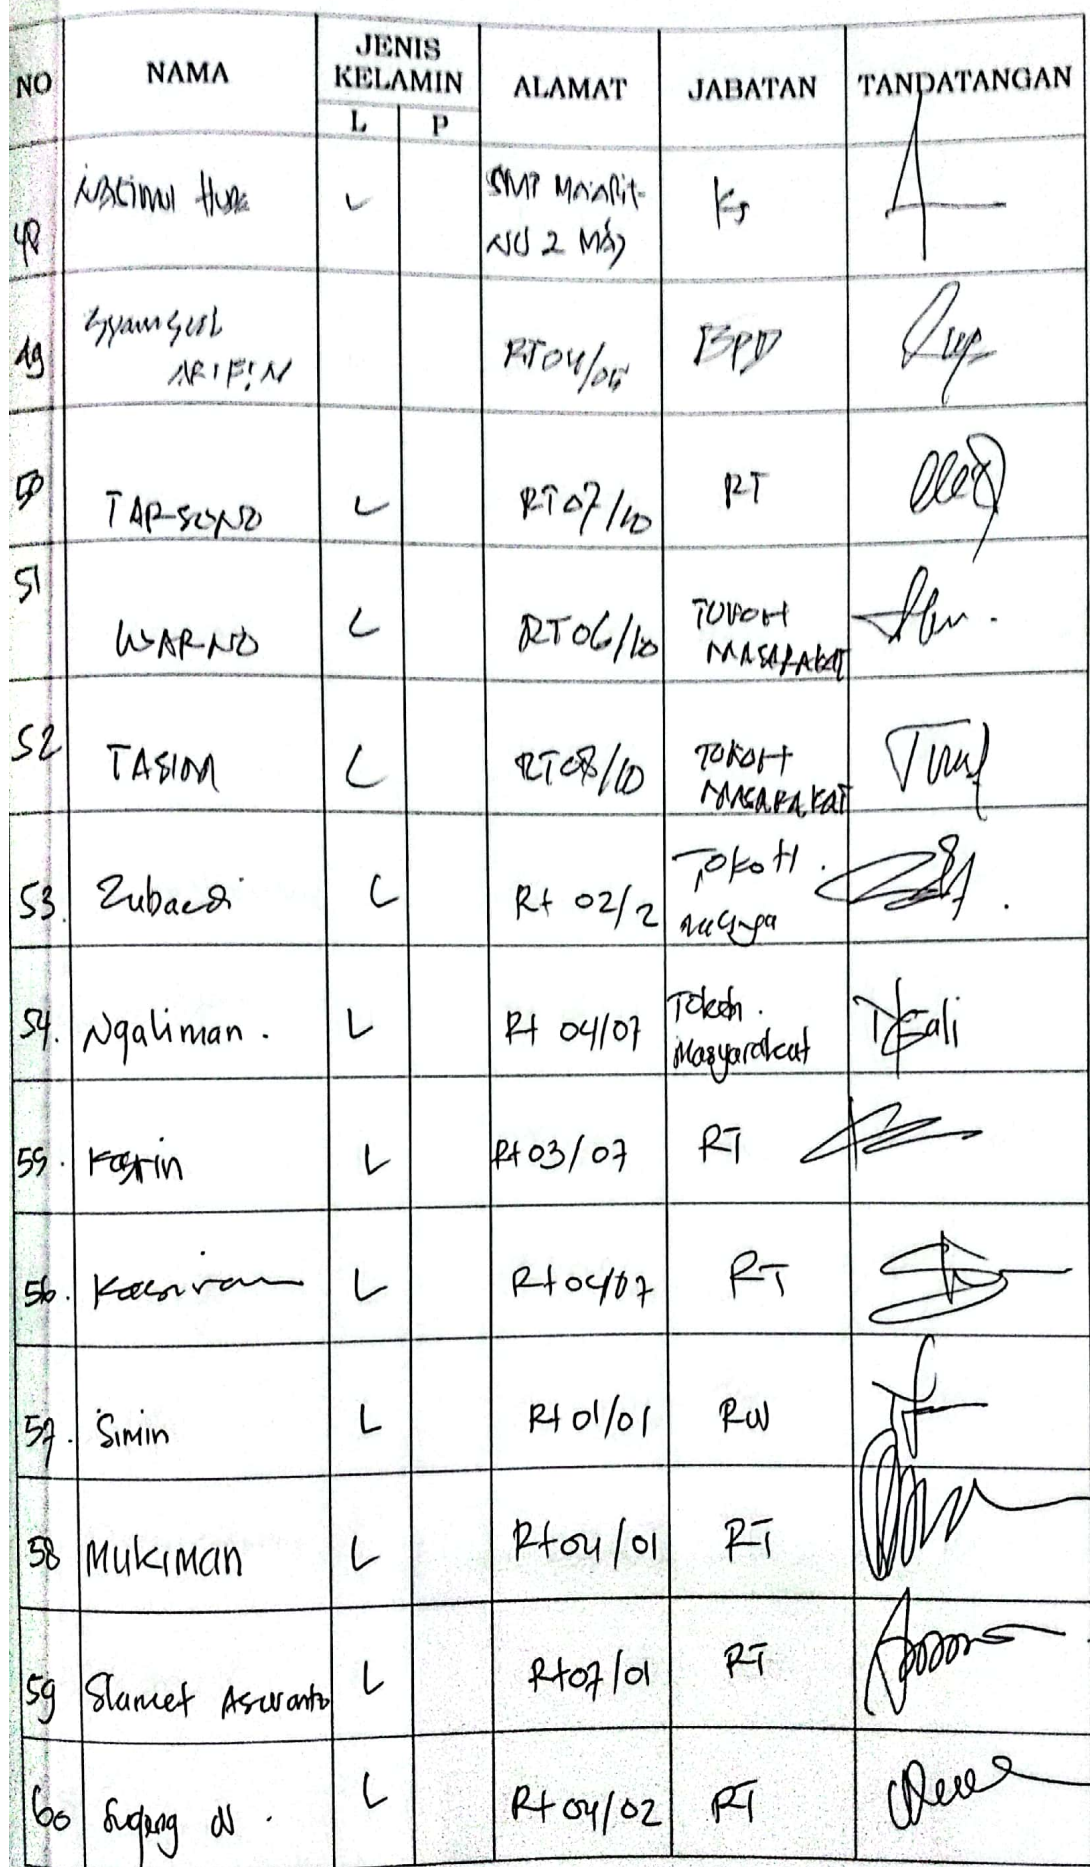 NO NAMA JENIS KELAMIN ALAMAT JABATAN TANDATANGAN
L P
48 Huda L SMP Maarif NU 2 Ks
49 Syamsul ARIFIN RT04/06 BPD
50 TARSONO L RT07/10 RT
51 WARNO L RT06/10 TOKOH MASARAKAT
52 TASIM L RT08/10 TOKOH MASARAKAT
53. Zubaedi L Rt 02/2 Tokoh
54. Ngaliman. L Rt 04/07 Tokoh. Masyarakat Ngali
55. Kasrin L Rt 03/07 RT
56. Kasiran L Rt 04/07 RT
57. Simin L Rt 01/01 RW
58 Mukiman L Rt 04/01 RT
59 Slamet Aswanto L Rt 07/01 RT
60 Sugeng N. L Rt 04/02 RT